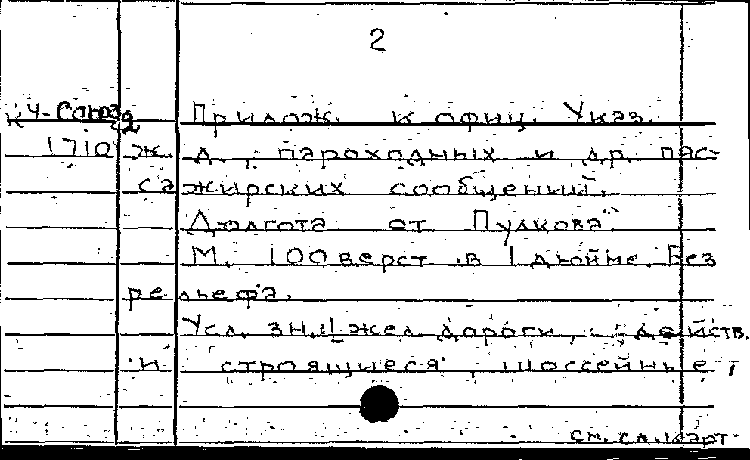 2
К Ч-Союз 2 Прилож. к офиц. Указ.
1710 ж. д., пароходных и др. пас-
сажирских сообщений.
Долгота от Пулкова"
М. 100 верст в 1 дюйме. Без
рельефа.
Усл. зн.: жел. дороги, действ.
и строящиеся, шоссейные,
см. сл. карт.